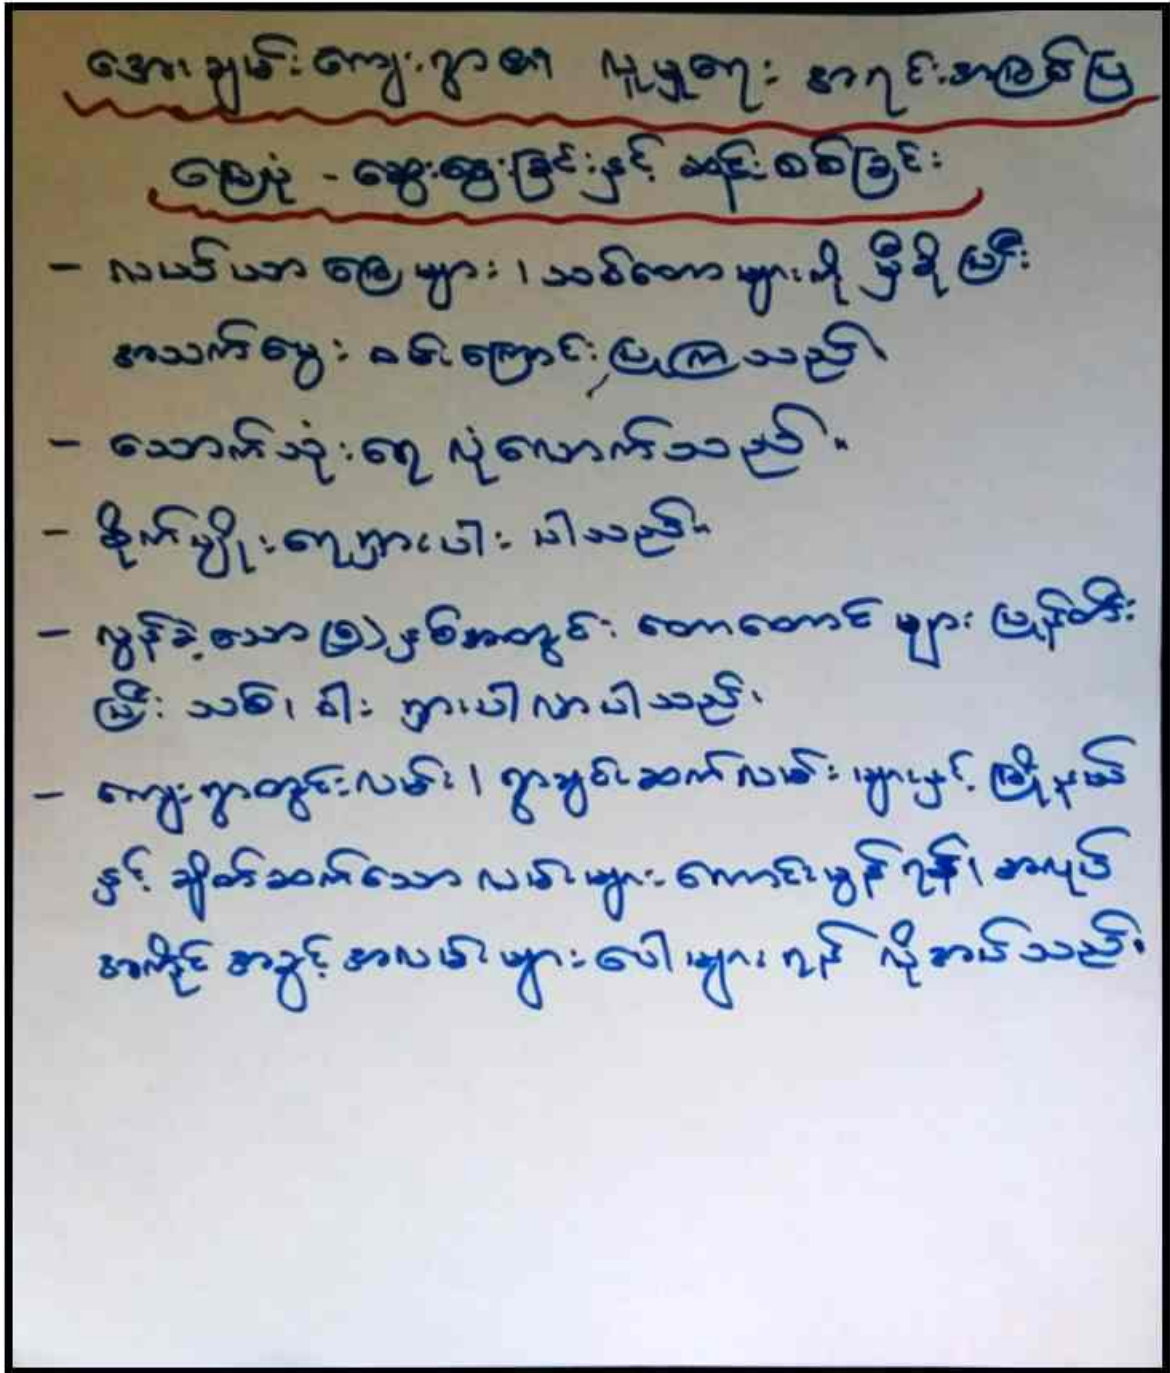 အေးချမ်းကျေးရွာ၏ လူမှုရေး အရင်းအမြစ်ပြ
မြေပုံ - ဆွေးနွေးခြင်းနှင့် ဆန်းစစ်ခြင်း
- လယ်ယာမြေများ၊ သစ်တောများကို မှီခိုပြီး
အသက်မွေးဝမ်းကြောင်းပြုကြသည်။
- သောက်သုံးရေ လုံလောက်သည်။
- စိုက်ပျိုးရေရှားပါးပါသည်။
- လွန်ခဲ့သော (၅) နှစ်အတွင်း တောတောင်များ ပြုန်းတီး
ပြီး သစ်၊ ဝါး ရှားပါလာပါသည်။
- ကျေးရွာတွင်းလမ်း၊ ရွာချင်းဆက်လမ်းများနှင့် မြို့နယ်
နှင့် ချိတ်ဆက်သော လမ်းများ ကောင်းမွန်ရန်၊ အလုပ်
အကိုင် အခွင့်အလမ်းများ ပေါများရန် လိုအပ်သည်။